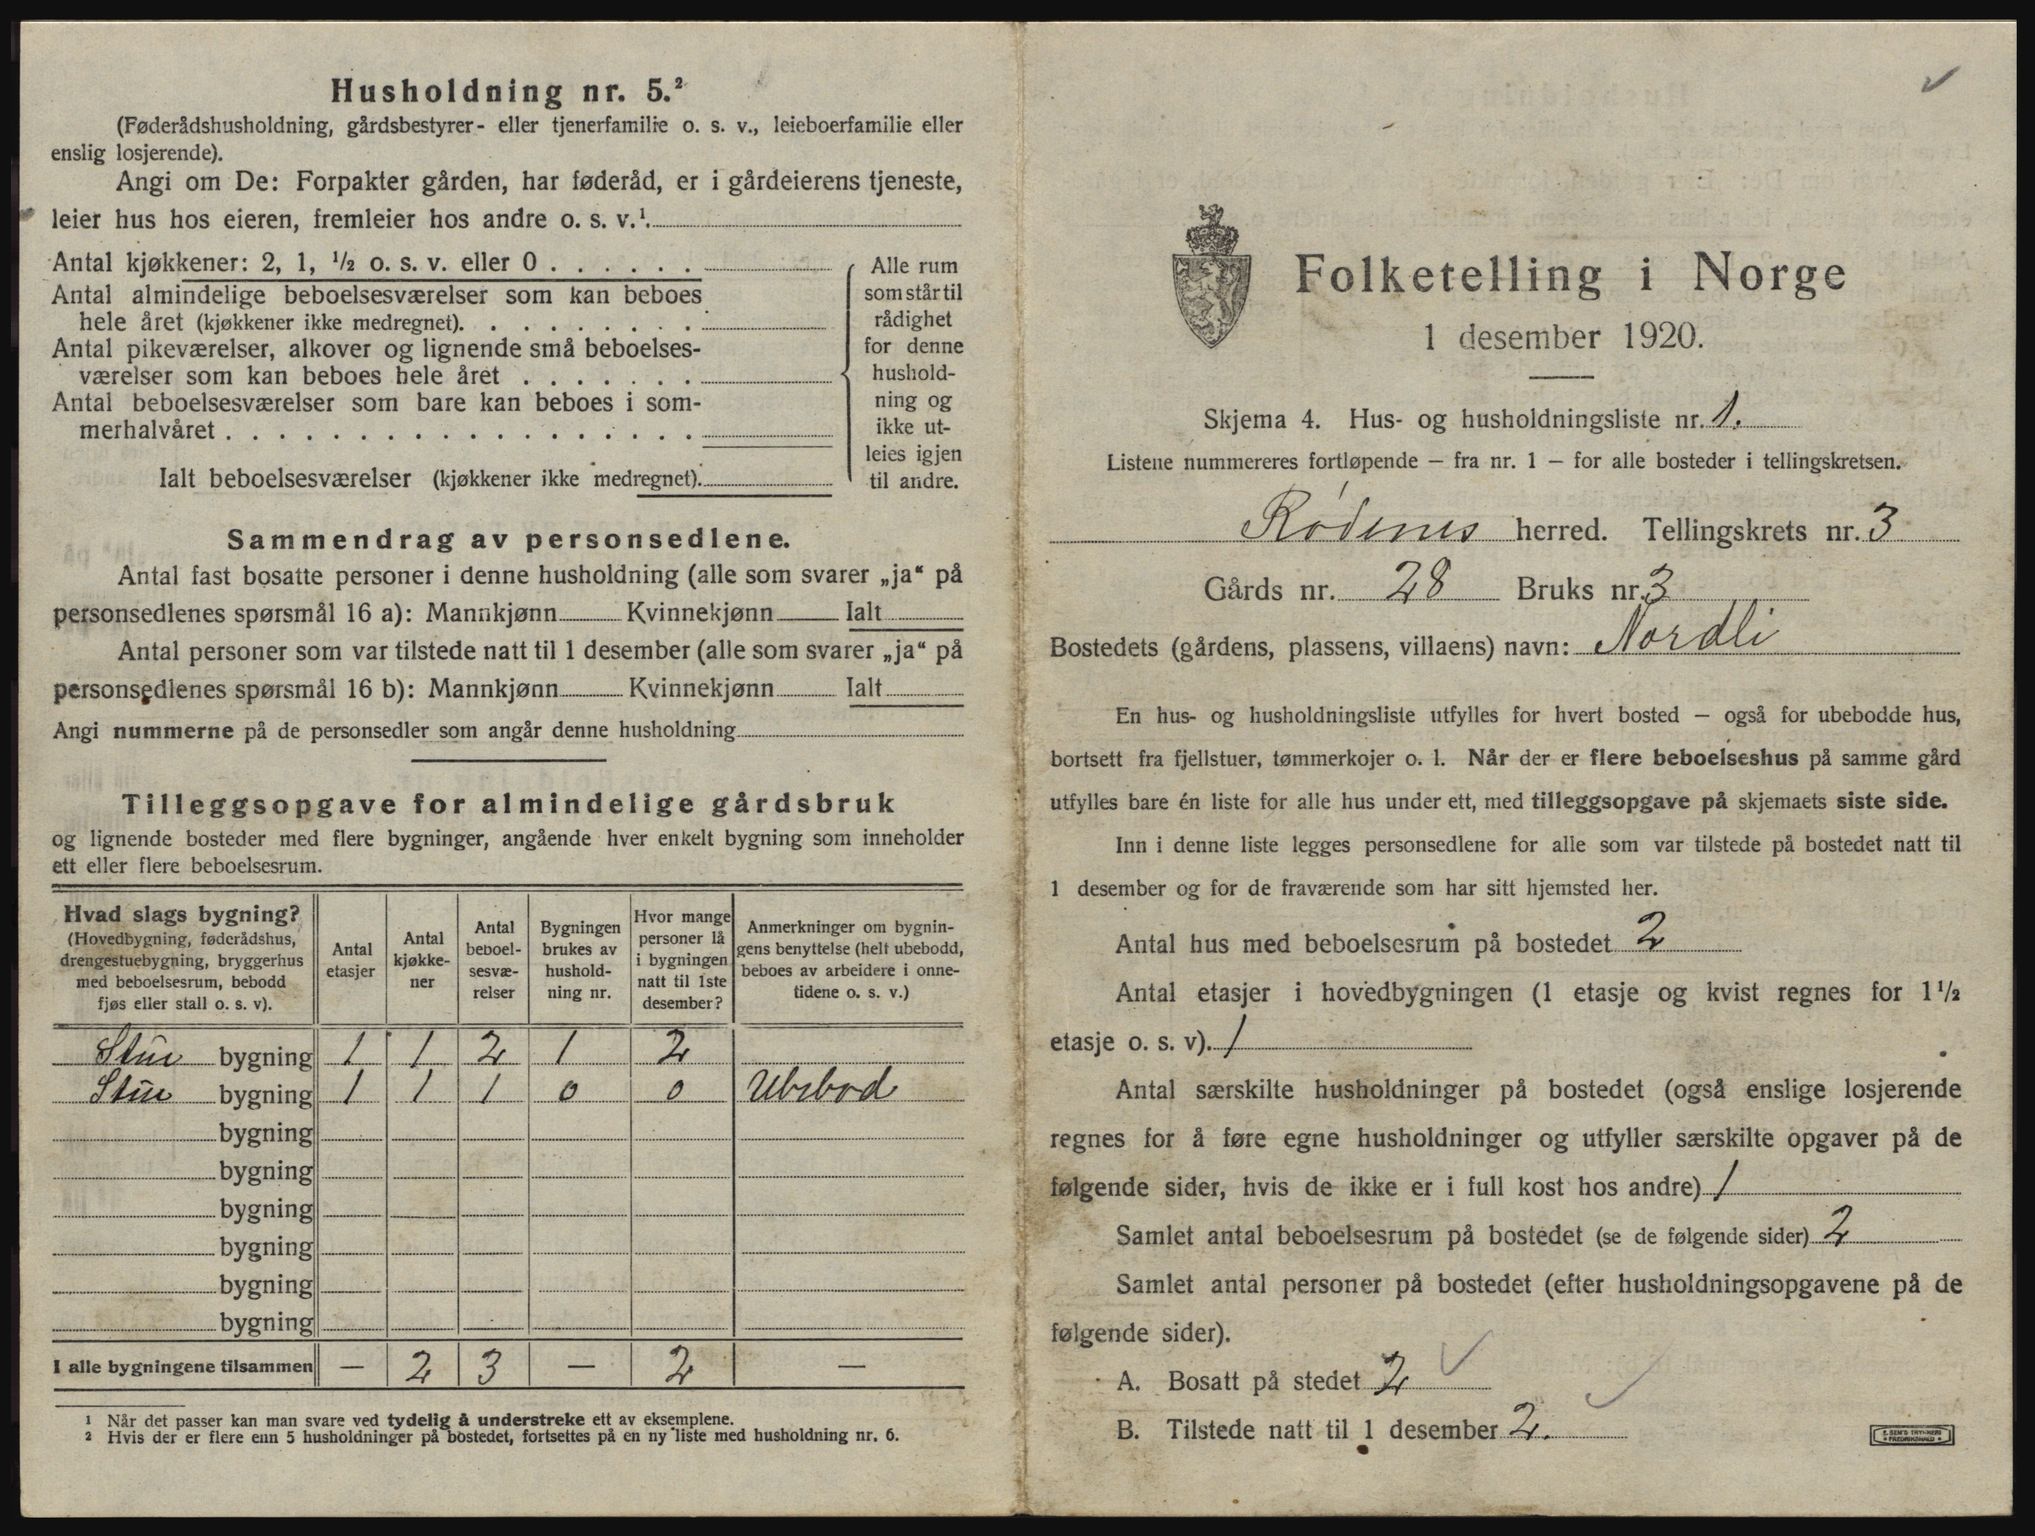 Husholdning nr. 5.²
(Føderådshusholdning, gårdsbestyrer- eller tjenerfamilie o. s. v., leieboerfamilie eller
enslig losjerende).
Angi om De: Forpakter gården, har føderåd, er i gårdeierens tjeneste,
leier hus hos eieren, fremleier hos andre o. s. v.¹.
Antal kjøkkener: 2, 1, ½ o. s. v. eller 0 . . . . . .
Antal almindelige beboelsesværelser som kan beboes
hele året (kjøkkener ikke medregnet). . . . . . . . .
Antal pikeværelser, alkover og lignende små beboelses-
værelser som kan beboes hele året . . . . . . .
Antal beboelsesværelser som bare kan beboes i som-
merhalvåret . . . . . . . . . . . . . . . . . .
Ialt beboelsesværelser (kjøkkener ikke medregnet).
Alle rum
som står til
rådighet
for denne
hushold-
ning og
ikke ut-
leies igjen
til andre.
Sammendrag av personsedlene.
Antal fast bosatte personer i denne husholdning (alle som svarer „ja“ på
personsedlenes spørsmål 16 a): Mannkjønn Kvinnekjønn Ialt
Antal personer som var tilstede natt til 1 desember (alle som svarer „ja“ på
personsedlenes spørsmål 16 b): Mannkjønn Kvinnekjønn Ialt
Angi nummerne på de personsedler som angår denne husholdning
Tilleggsopgave for almindelige gårdsbruk
og lignende bosteder med flere bygninger, angående hver enkelt bygning som inneholder
ett eller flere beboelsesrum.
Hvad slags bygning?
(Hovedbygning, føderådshus,
drengestuebygning, bryggerhus
med beboelsesrum, bebodd
fjøs eller stall o. s. v).
Antal
etasjer
Antal
kjøkke-
ner
Antal
beboel-
sesvæ-
relser
Bygningen
brukes av
hushold-
ning nr.
Hvor mange
personer lå
i bygningen
natt til 1ste
desember?
Anmerkninger om bygnin-
gens benyttelse (helt ubebodd,
beboes av arbeidere i onne-
tidene o. s. v.)
Stue bygning 1 1 2 1 2
Stue bygning 1 1 1 0 0 Ubebod
bygning
bygning
bygning
bygning
bygning
bygning
I alle bygningene tilsammen — 2 3 — 2 —
¹ Når det passer kan man svare ved tydelig å understreke ett av eksemplene.
² Hvis der er flere enn 5 husholdninger på bostedet, fortsettes på en ny liste med husholdning nr. 6.
Folketelling i Norge
1 desember 1920.
Skjema 4. Hus- og husholdningsliste nr. 1.
Listene nummereres fortløpende – fra nr. 1 – for alle bosteder i tellingskretsen.
Rødenes herred. Tellingskrets nr. 3
Gårds nr. 28 Bruks nr. 3
Bostedets (gårdens, plassens, villaens) navn: Nordli
En hus- og husholdningsliste utfylles for hvert bosted – også for ubebodde hus,
bortsett fra fjellstuer, tømmerkojer o. l. Når der er flere beboelseshus på samme gård
utfylles bare én liste for alle hus under ett, med tilleggsopgave på skjemaets siste side.
Inn i denne liste legges personsedlene for alle som var tilstede på bostedet natt til
1 desember og for de fraværende som har sitt hjemsted her.
Antal hus med beboelsesrum på bostedet 2
Antal etasjer i hovedbygningen (1 etasje og kvist regnes for 1½
etasje o. s. v). 1
Antal særskilte husholdninger på bostedet (også enslige losjerende
regnes for å føre egne husholdninger og utfyller særskilte opgaver på de
følgende sider, hvis de ikke er i full kost hos andre) 1
Samlet antal beboelsesrum på bostedet (se de følgende sider) 2
Samlet antal personer på bostedet (efter husholdningsopgavene på de
følgende sider).
A. Bosatt på stedet 2
B. Tilstede natt til 1 desember 2.